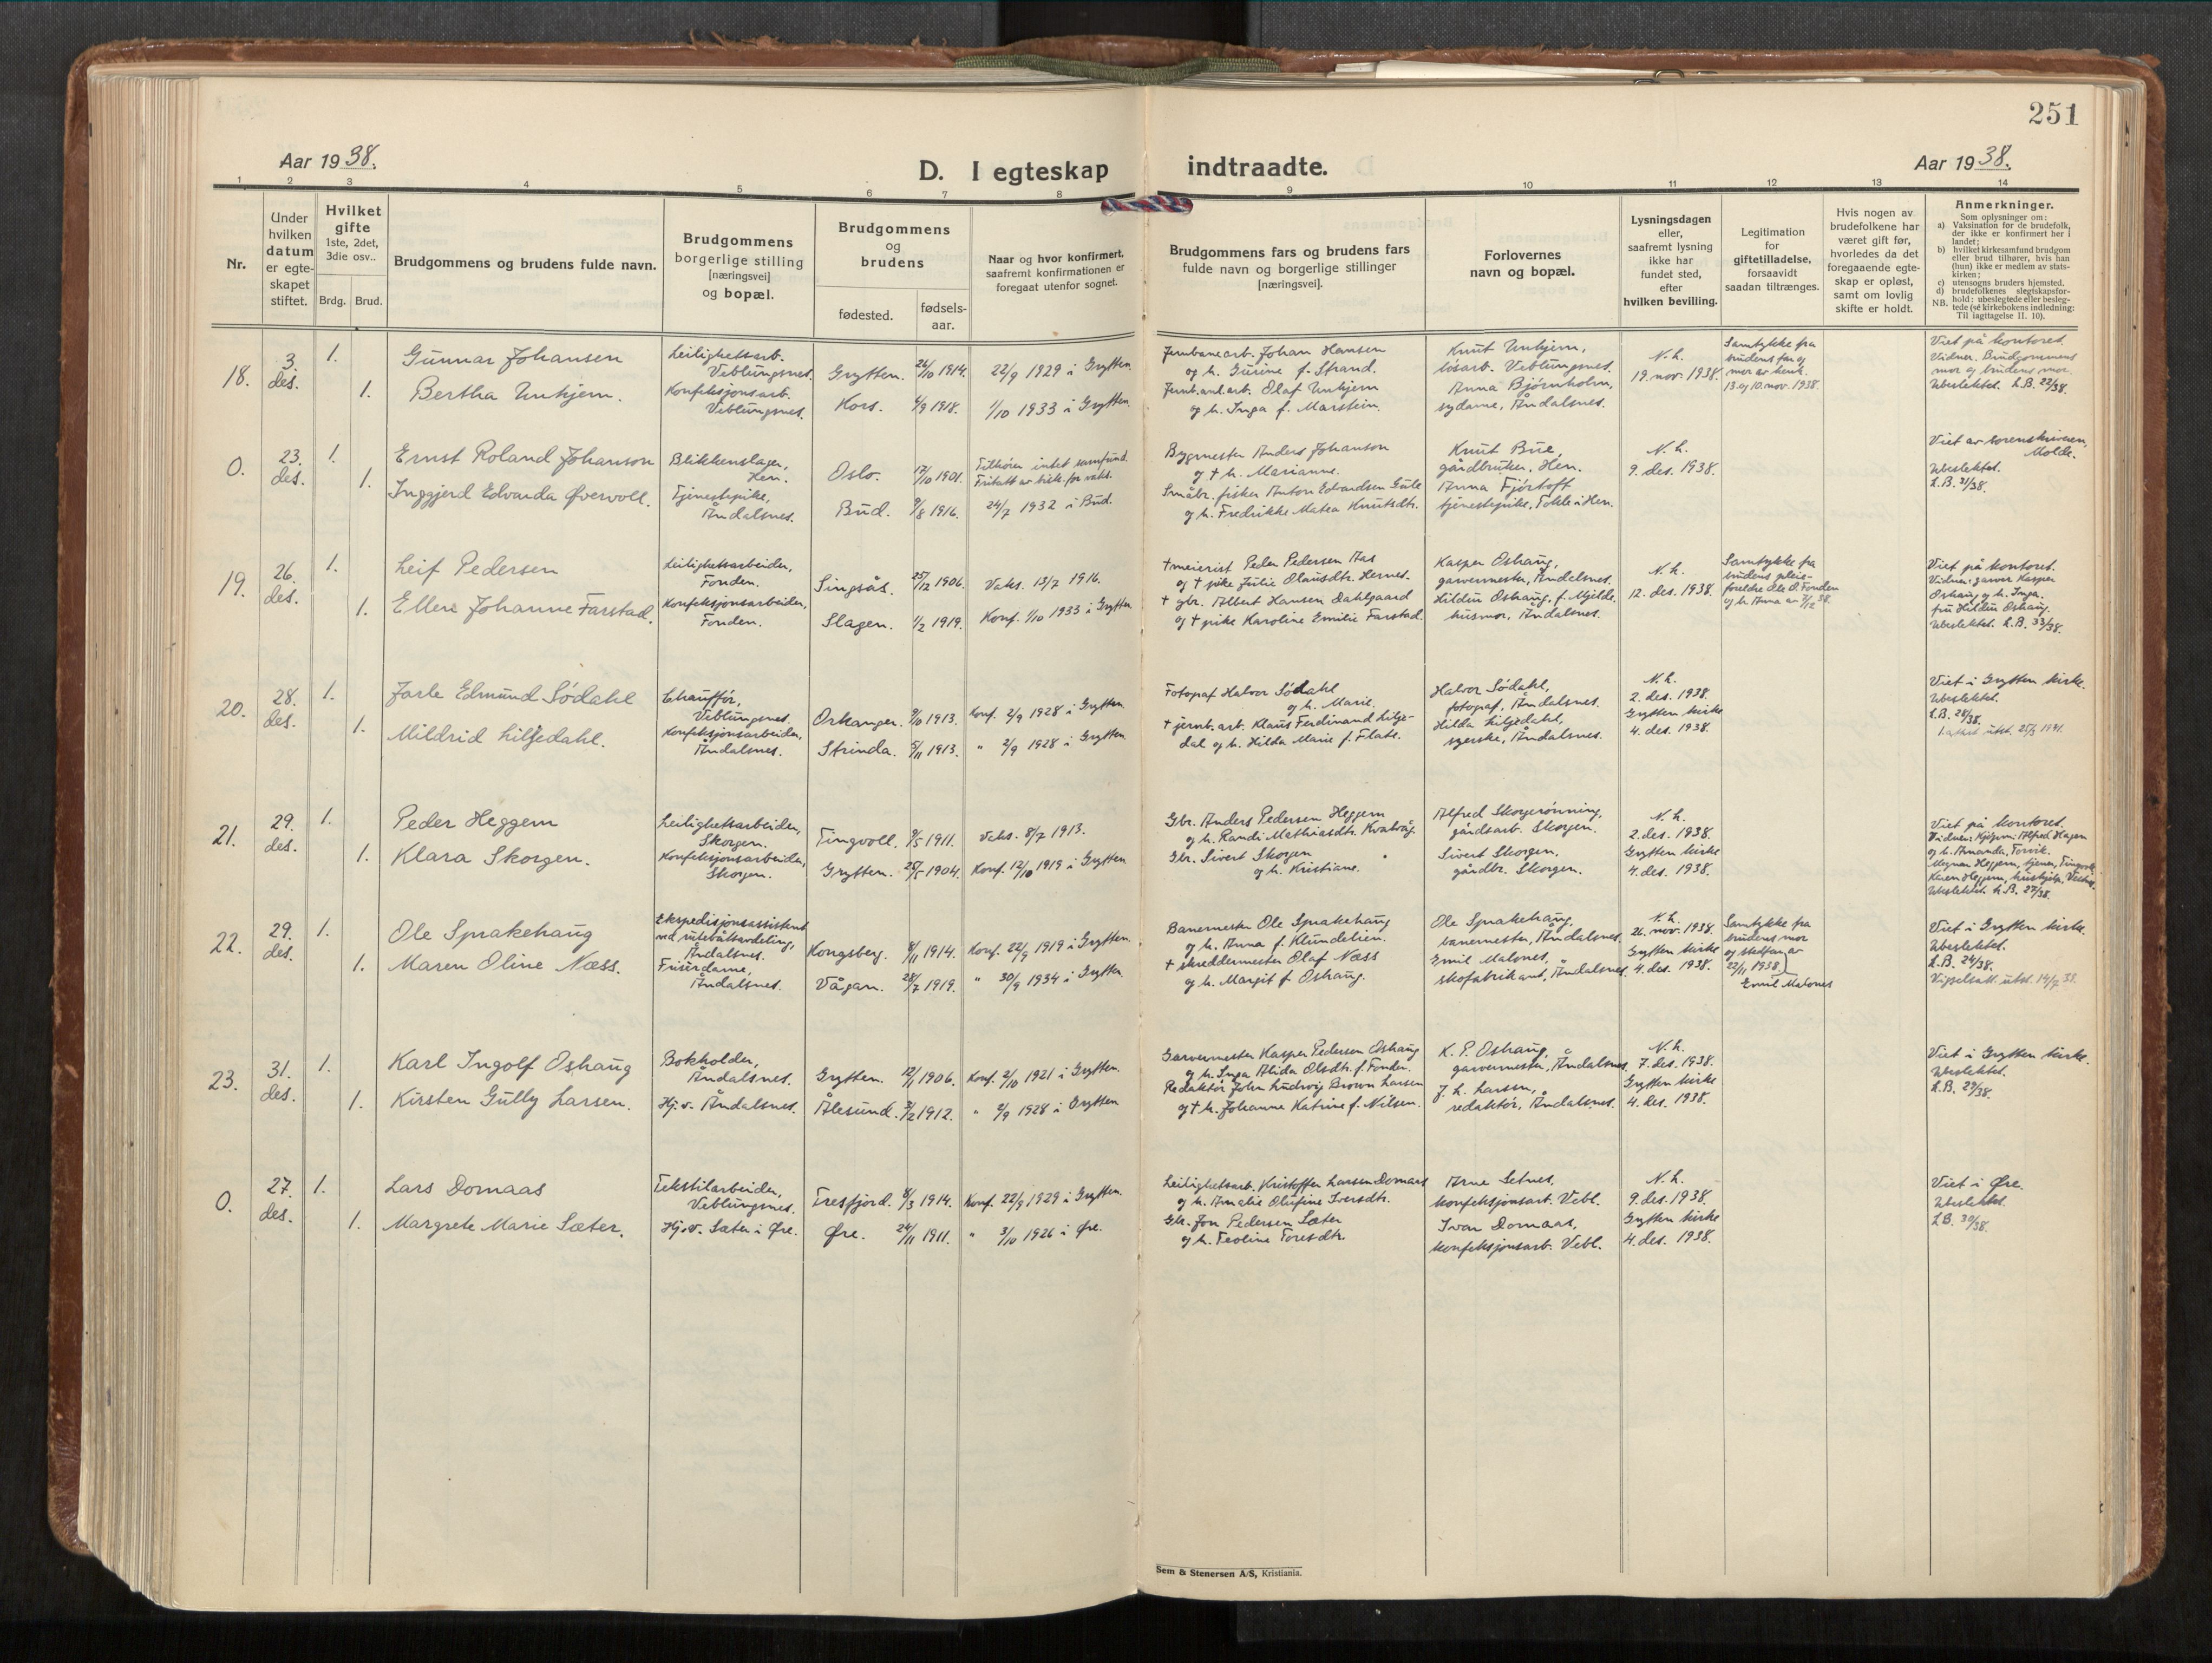 251
Aar 1938.
D. I egteskap indtraadte.
Aar 1938.
1 2 3 4 5 6 7 8 9 10 11 12 13 14
Nr.
Under
hvilken
datum
er egte-
skapet
stiftet.
Hvilket
gifte
1ste, 2det,
3die osv..
Brdg. Brud.
Brudgommens og brudens fulde navn.
Brudgommens
borgerlige stilling
[næringsvei]
og bopæl.
Brudgommens
og
brudens
fødested.
fødsels-
aar.
Naar og hvor konfirmert,
saafremt konfirmationen er
foregaat utenfor sognet.
Brudgommens fars og brudens fars
fulde navn og borgerlige stillinger
[næringsvei].
Forlovernes
navn og bopæl.
Lysningsdagen
eller,
saafremt lysning
ikke har
fundet sted,
efter
hvilken bevilling.
Legitimation
for
giftetilladelse,
forsaavidt
saadan tiltrænges.
Hvis nogen av
brudefolkene har
været gift før,
hvorledes da det
foregaaende egte-
skap er opløst,
samt om lovlig
skifte er holdt.
Anmerkninger.
Som oplysninger om:
a) Vaksination for de brudefolk,
der ikke er konfirmert her i
landet;
b) hvilket kirkesamfund brudgom
eller brud tilhører, hvis han
(hun) ikke er medlem av stats-
kirken;
c) utensogns bruders hjemsted.
d) brudefolkenes slegtskapsfor-
hold: ubeslegtede eller besleg-
NB. tede (se kirkebokens indledning:
Til iagttagelse II. 10).
18.
3.
des.
1.
1.
Gunnar Johansen
Bertha Unhjem.
Leilighetsarb.
Veblungsnes.
Konfeksjonsarb.
Veblungsnes.
Grytten. 26/10 1914. 22/9 1929 i Grytten.
Kors. 4/9 1918. 1/10 1933 i Grytten.
Jernbanearb. Johan Hansen
og h. Gurine f. Strand.
Jernb.anl.arb. Olaf Unhjem
og h. Inga f. Marstein.
Knut Unhjem,
løsarb. Veblungsnes.
Anna Bjørnholm,
sydame, Åndalsnes.
N. h.
19. nov. 1938.
Samtykke fra
brudens far og
mor av henh.
13. og 10. nov. 1938.
Viet på kontoret.
Vidner. Brudgommens
mor og brudens mor.
Ubeslektet. L.B. 22/38.
0.
23.
des.
1.
1.
Ernst Roland Johanson
Inggjerd Edvarda Øvervoll.
Blikkenslager,
Hen.
Tjenestepike,
Åndalsnes.
Oslo. 17/10 1901. Tilhører intet samfund.
Fritatt av bisk. for vaks.
Bud. 9/8 1916. 24/7 1932 i Bud.
Bygmester Anders Johanson
og † h. Marianne.
Småbr. fisker Anton Edvardsen Gule
og h. Fredrikke Matea Knutsdtr.
Knut Bue,
gårdbruker, Hen.
Anna Fjørtoft
tjenestepike, Tokle i Hen.
N. h.
9. des. 1938.
Viet av sorenskriveren,
Molde.
Ubeslektet.
L.B. 31/38.
19.
26.
des.
1.
1.
Leif Pedersen
Ellen Johanne Farstad.
Leilighetsarbeider,
Fonden.
Konfeksjonsarbeider,
Fonden.
Singsås. 25/12 1906. Vaks. 13/7 1916.
Slagen. 1/2 1919. Konf. 1/10 1933 i Grytten
† meierist Peder Pedersen Aas
og † pike Julie Olausdtr. Hernes.
† gbr. Albert Hansen Dahlgaard
og † pike Karoline Emilie Farstad.
Kasper Oshaug,
garvermester, Åndalsnes.
Hildur Oshaug, f. Mjelde.
husmor, Åndalsnes.
N. h.
12. des. 1938.
Samtykke fra
brudens pleie-
foreldre Ole O. Fonden
og h. Anna av 7/12 38.
Viet på kontoret.
Vidner: garver Kasper
Oshaug og h. Inga.
fru Hildur Oshaug.
Ubeslektet. L.B. 33/38.
20.
28.
des.
1.
1.
Jarle Edmund Sødahl
Mildrid Liljedahl.
Chauffør,
Veblungsnes.
Konfeksjonsarbeider,
Åndalsnes.
Orkanger. 9/10 1913. Konf. 2/9 1928 i Grytten
Strinda. 5/11 1913. " 2/9 1928 i Grytten
Fotograf Halvor Sødahl
og h. Marie.
† jernb.arb. Klaus Ferdinand Lilje-
dal og h. Hilda Marie f. Flate.
Halvor Sødahl,
fotograf, Åndalsnes.
Hilda Liljedahl,
syerske, Åndalsnes.
N. h.
2. des. 1938.
Grytten kirke
4. des. 1938.
Viet i Grytten kirke.
Ubeslektet.
L.B. 28/38.
1. attest utst. 25/3 1941.
21.
29.
des.
1.
1.
Peder Heggem
Klara Skorgen.
Leilighetsarbeider,
Skorgen.
Konfeksjonsarbeider,
Skorgen.
Tingvoll. 9/5 1911. Vaks. 8/7 1913.
Grytten. 25/5 1904. Konf. 12/10 1919 i Grytten
Gbr. Anders Pedersen Heggem
og h. Randi Mathiasdtr. Kvalvåg.
Gbr. Sivert Skorgen
og h. Kristiane.
Alfred Skorgerønning,
gårdsarb. Skorgen.
Sivert Skorgen,
gårdbr. Skorgen.
N. h.
2. des. 1938.
Grytten kirke
4. des. 1938.
Viet på kontoret.
Vidner: Kjøpm. Alfred Hagen
og h. Amanda, Torvik.
Magnar Heggem, tjener, Tingvoll
Karen Heggem, hushjelp,
Ubeslektet. L.B. 27/38.
22.
29.
des.
1.
1.
Ole Sprakehaug
Maren Oline Næss.
Ekspedisjonsassistent
ved rutebåtavdeling,
Åndalsnes.
Frisørdame,
Åndalsnes.
Kongsberg. 8/11 1914. Konf. 22/9 1919 i Grytten.
Vågan. 28/7 1919. " 30/9 1934 i Grytten.
Banemester Ole Sprakehaug
og h. Anna f. Klundelien.
† skreddermester Olaf Næss
og h. Margit f. Oshaug.
Ole Sprakehaug,
banemester, Åndalsnes.
Emil Malones,
skofabrikant, Åndalsnes.
N. h.
26. nov. 1938.
Grytten kirke
4. des. 1938.
Samtykke fra
brudens mor
og stedfar av
22/11 1938)
Emil Malones
Viet i Grytten kirke.
Ubeslektet.
L.B. 24/38.
Vigselsatt. utst. 14/7 39.
23.
31.
des.
1.
1.
Karl Ingolf Oshaug
Kirsten Gully Larsen.
Bokholder,
Åndalsnes.
Hj.v. Åndalsnes.
Grytten. 12/11 1906. Konf. 2/10 1921 i Grytten.
Ålesund. 3/2 1912. " 2/9 1928 i Grytten
Garvermester Kasper Pedersen Oshaug
og h. Inga Alida Olsdtr. f. Fonden.
Redaktør John Ludwig Brown Larsen
og † h. Johanne Katrine f. Nilsen.
K. P. Oshaug,
garvermester, Åndalsnes.
J. L. Larsen,
redaktør, Åndalsnes.
N. h.
7. des. 1938.
Grytten kirke
4. des. 1938.
Viet i Grytten kirke.
Ubeslektet.
L.B. 29/38.
0.
27.
des.
1.
1.
Lars Dornaas
Margrete Marie Sæter.
Tekstilarbeider,
Veblungsnes.
Hj.v. Sæter i Øre.
Tresfjord. 8/3 1914. Konf. 22/9 1929 i Grytten.
Øre. 24/11 1911. " 3/10 1926 i Øre.
Leilighetsarb. Kristoffer Larsen Dornaas
og h. Amalie Olufine Iversdtr.
Gbr. Jon Pedersen Sæter
og h. Teoline Toresdtr.
Arne Setnes,
konfeksjonsarb. Vebl.
Ivar Dornaas,
konfeksjonsarb. Vebl.
N. h.
9. des. 1938.
Grytten kirke
4. des. 1938.
Viet i Øre.
Ubeslektet.
L.B. 30/38.
Sem & Stenersen A/S, Kristiania.